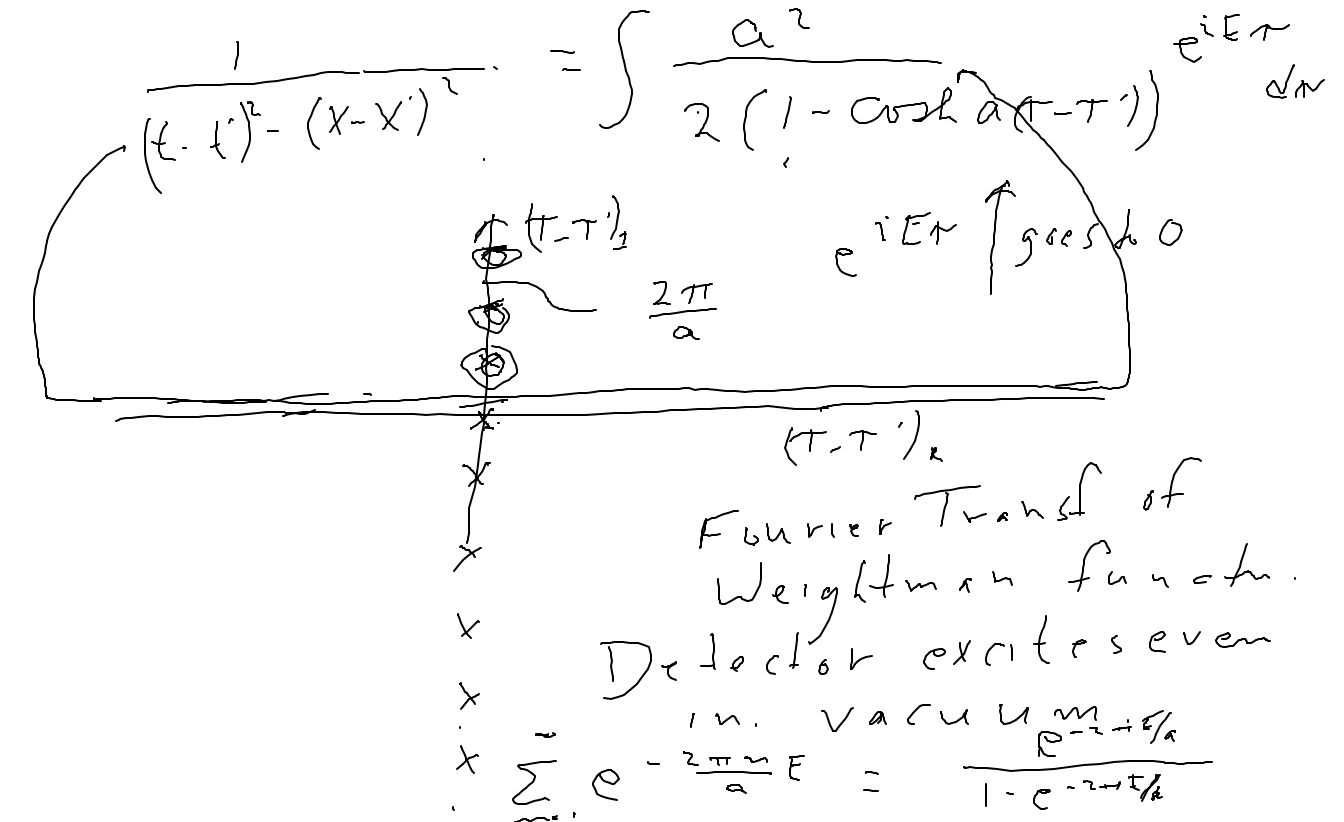 1 / ((t-t')² - (x-x')²) = ∫ a² / (2(1 - cosh a(τ-τ'))) e^{iEτ} dτ
(τ-τ')_I
e^{iEτ} ↑ goes to 0
2π/a
(τ-τ')_R
Fourier Transf of
Weightman functn.
Detector excites even
in vacuum
∑ e^{-2πn/a E} = e^{-2πE/a} / (1 - e^{-2πE/a})